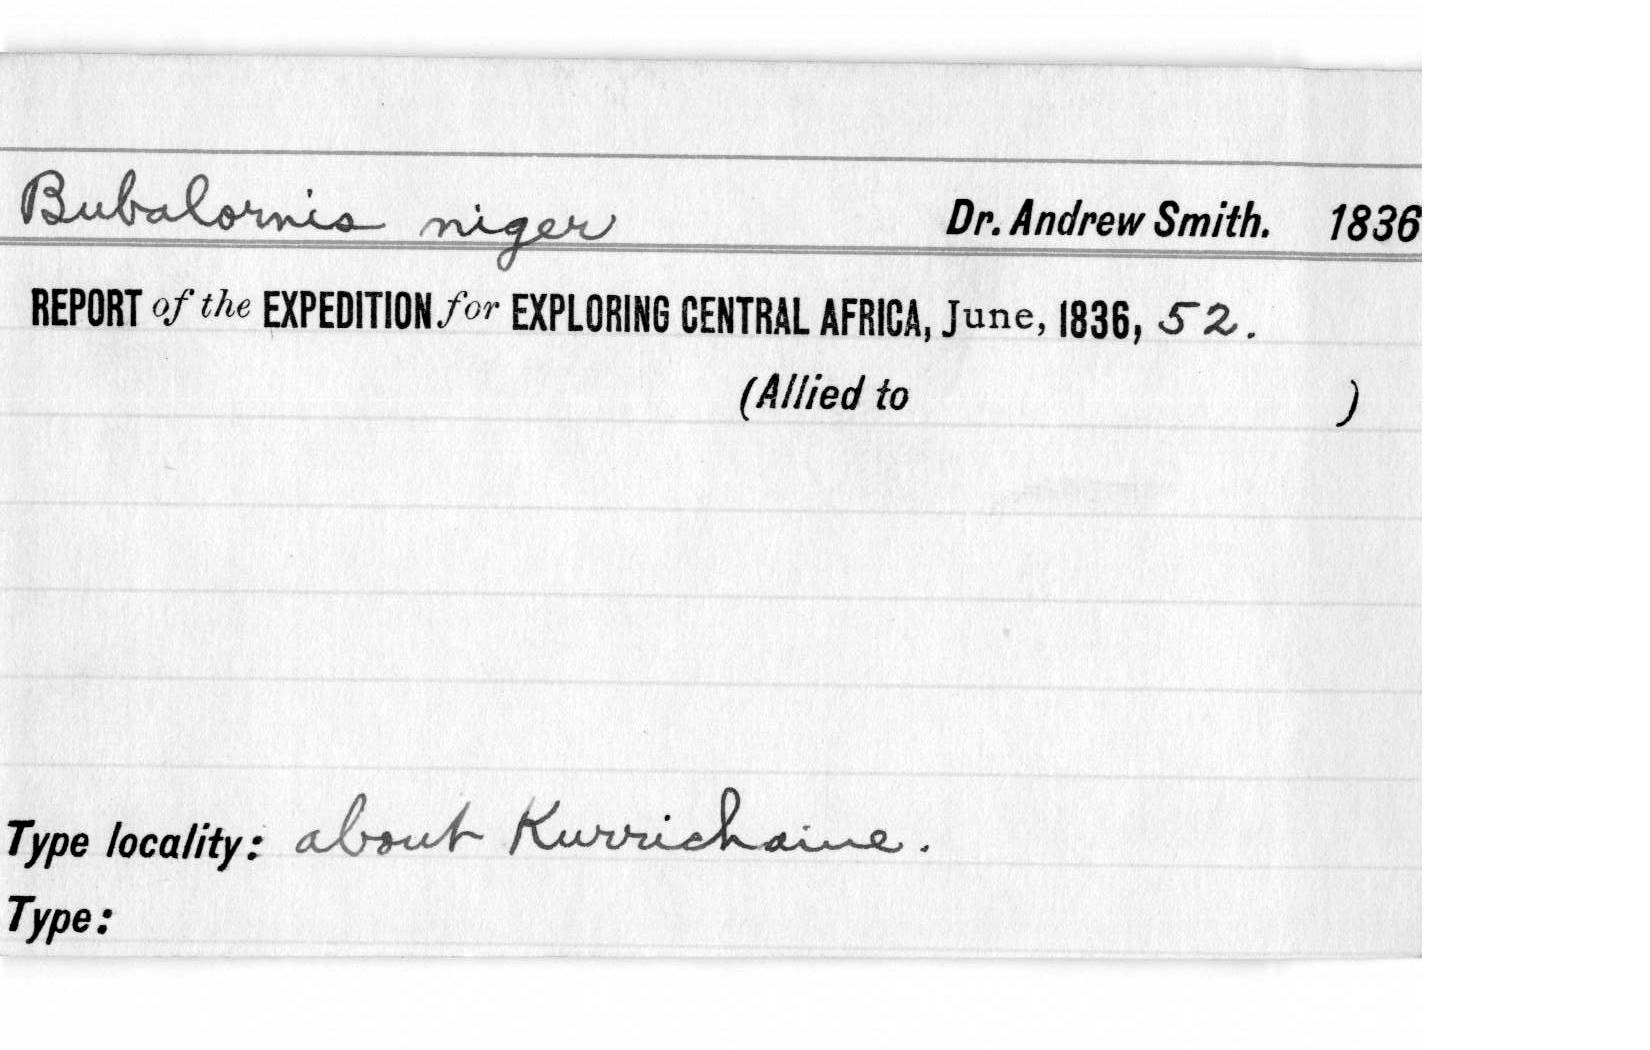 Bubalornis niger Dr. Andrew Smith. 1836
REPORT of the EXPEDITION for EXPLORING CENTRAL AFRICA, June, 1836, 52.
(Allied to )
Type locality: about Kurrichaine.
Type: